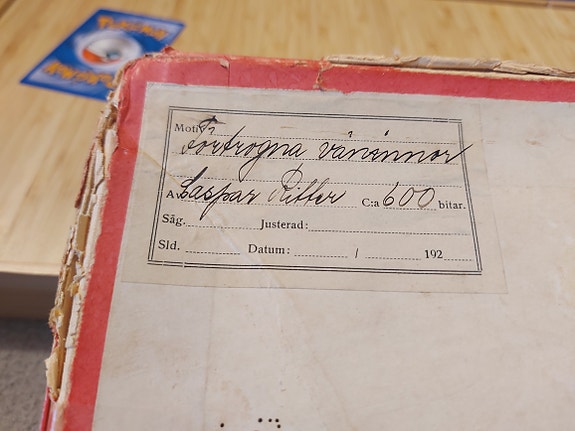 POKÉMON
POKÉMON
Motiv Förtrogna väninnor
Av Caspar Ritter C:a 600 bitar.
Såg. Justerad:
Sld. Datum: / 192